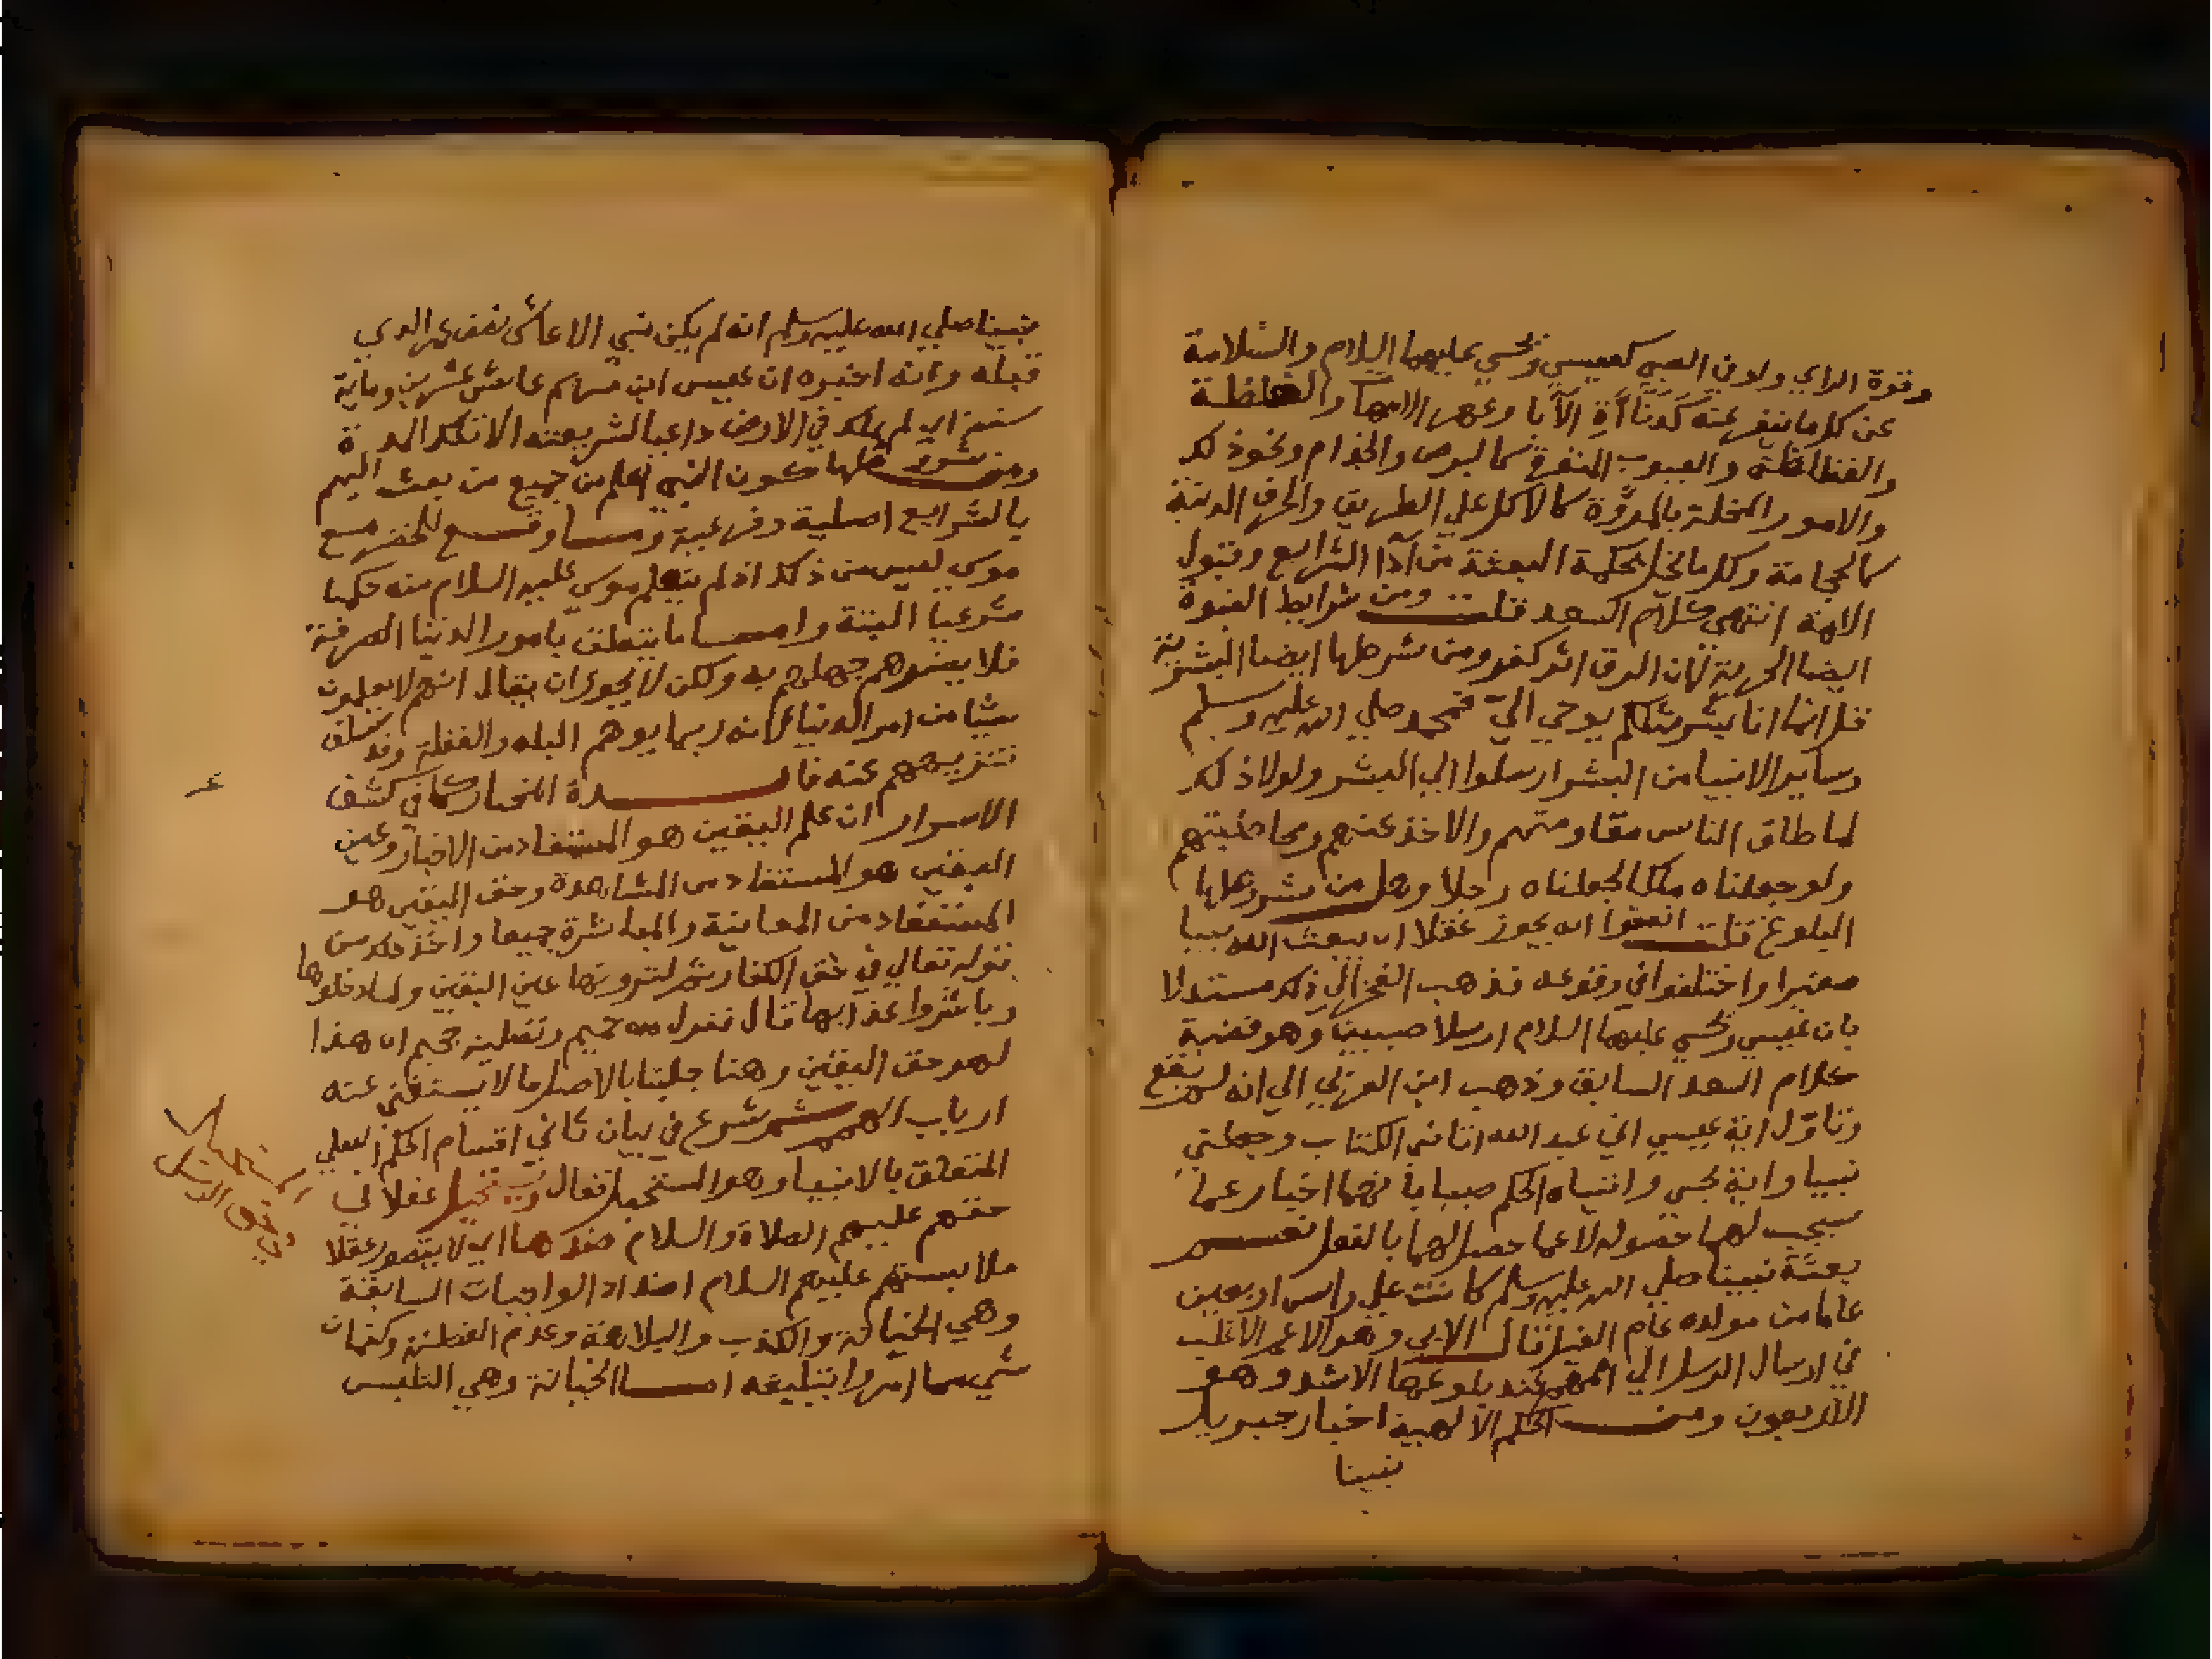 وقوة الراي ولو في الصبي كعيسي ويحيي عليهما السلام والسلامة
عن كل ما ينفر عنه كدناأة الآبا وعهر الامهات والغلظة
والفظاظة والعيوب المنفرة كالبرص والجذام ونحو ذلك
والامور المخلة بالمروَّة كالاكل علي الطريق والحرف الدنية
كالحجامة وكل ما يخل بحكمة البعثة من آدا الشرايع وقبول
الامة انتهي كلام السعد قلت ومن شرايط النبوة
ايضا الحرية لان الرق اثر كفر ومن شرطها ايضا البشرية
قل انما انا بشر مثلكم يوحي اليّ فمحمد صلي الله عليه وسلم
وساير الانبيا من البشر ارسلوا الي البشر ولولا ذلك
لما طاق الناس مقاومتهم والاخذ عنهم ومخاطبتهم
ولو جعلناه ملكا لجعلناه رجلا وهل من شروطها
البلوغ قلت اتفقوا انه يجوز عقلا ان يبعث الله نبيا
صغيرا واختلفوا في وقوعه فذهب الفخر الي ذلك مستدلا
بان عيسي ويحيي عليهما السلام ارسلا صبيين وهو قضية
كلام السعد السابق وذهب ابن العربي الي انه لم يقع
وتاوّل اية عيسي اني عبد الله اتاني الكتاب وجعلني
نبيا واية يحيي واتيناه الحكم صبيا بانهما اخبار عما
سيجب لهما حصوله لا عما حصل لهما بالفعل نعم
بعثة نبينا صلي الله عليه وسلم كانت علي راس اربعين
عاما من مولده عام الفيل قال الابي وهو الاعم الاغلب
في ارسال الرسل الي اممهم عند بلوغها الاشد وهو
الاربعون ومن الحكم الالهية اخبار جبريل
نبينا
نبينا صلي الله عليه وسلم انه لم يكن نبي الا عاش نصف عمر الذي
قبله وانه اخبره ان عيسي ابن مريم عاش عشرين وماية
سنة اي لم يمكث في الارض داعيا لشريعته الا تلك المدة
ومن شروطها كون النبي اعلم من جميع من بعث اليهم
بالشرايع اصلية وفرعية وما وقع للخضر مع
موسي ليس من ذلك اذ لم يتعلم موسي عليه السلام منه حكما
شرعيا البتة واما ما يتعلق بامور الدنيا الصرفة
فلا يضرهم جهلهم به ولكن لا يجوز ان يقال انهم لا يعلمون
شيا من امر الدنيا لانه ربما يوهم البله والغفلة وقد سلف
تنزيههم عنه فايدة المختار كما في كشف
الاسرار ان علم اليقين هو المستفاد من الاخبار وعين
اليقين هو المستفاد من المشاهدة وحق اليقين هو
المستفاد من المعاينة والمباشرة جميعا واخذ ذلك من
قوله تعالي في حق الكفار ثم لترونها عين اليقين ولما دخلوها
وباشروا عذابها قال فنزل من حميم وتصلية جحيم ان هذا
لهو حق اليقين وهنا جلبنا بالاصل ما لا يستغني عنه
ارباب الهمم ثم شرع في بيان ثاني اقسام الحكم العقلي
المتعلق بالانبيا وهو المستحيل فقال ويستحيل عقلا في
حقهم عليهم الصلاة والسلام ضدها اي لا يتصور عقلا
ملابستهم عليهم السلام اضداد الواجبات السابقة
وهي الخيانة والكذب والبلاهة وعدم الفطنة وكتمان
شي مما امروا بتبليغه اما الخيانة وهي التلبس